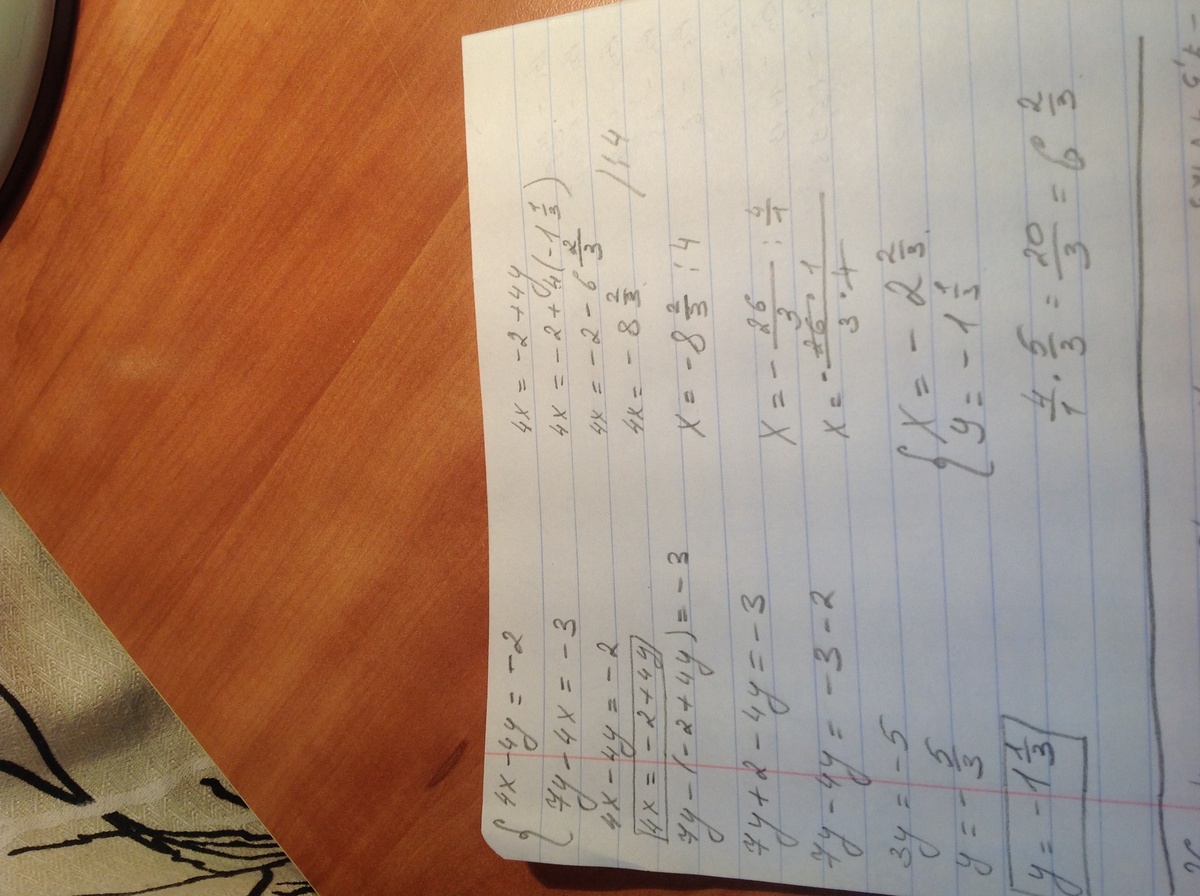 { 4x - 4y = -2
7y - 4x = -3
4x - 4y = -2
4x = -2 + 4y
7y - (-2 + 4y) = -3
7y + 2 - 4y = -3
7y - 4y = -3 - 2
3y = -5
y = - 5/3
y = -1 1/3
4x = -2 + 4y
4x = -2 + 4(-1 1/3)
4x = -2 - 6 2/3
4x = - 8 2/3 /:4
x = -8 2/3 : 4
x = - 26/3 : 4/1
x = - 26 · 1 / 3 · 4
{ x = - 2 2/3
y = -1 1/3
4/1 · 5/3 = 20/3 = 6 2/3